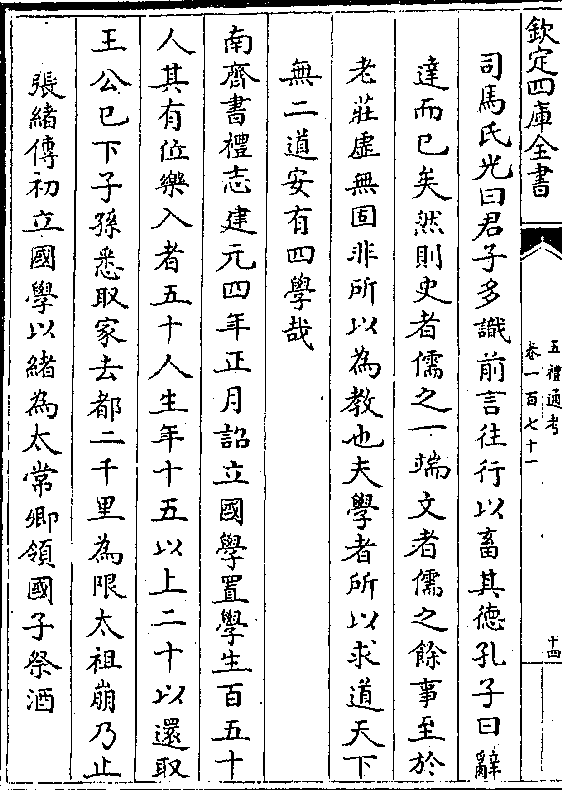 欽定四庫全書
五禮通考
卷一百七十一
十四
司馬氏光曰君子多識前言往行以畜其德孔子曰辭
達而已矣然則史者儒之一端文者儒之餘事至於
老莊虛無固非所以為教也夫學者所以求道天下
無二道安有四學哉
南齊書禮志建元四年正月詔立國學置學生百五十
人其有位樂入者五十人生年十五以上二十以還取
王公已下子孫悉取家去都二千里為限太祖崩乃止
張緒傳初立國學以緒為太常卿領國子祭酒